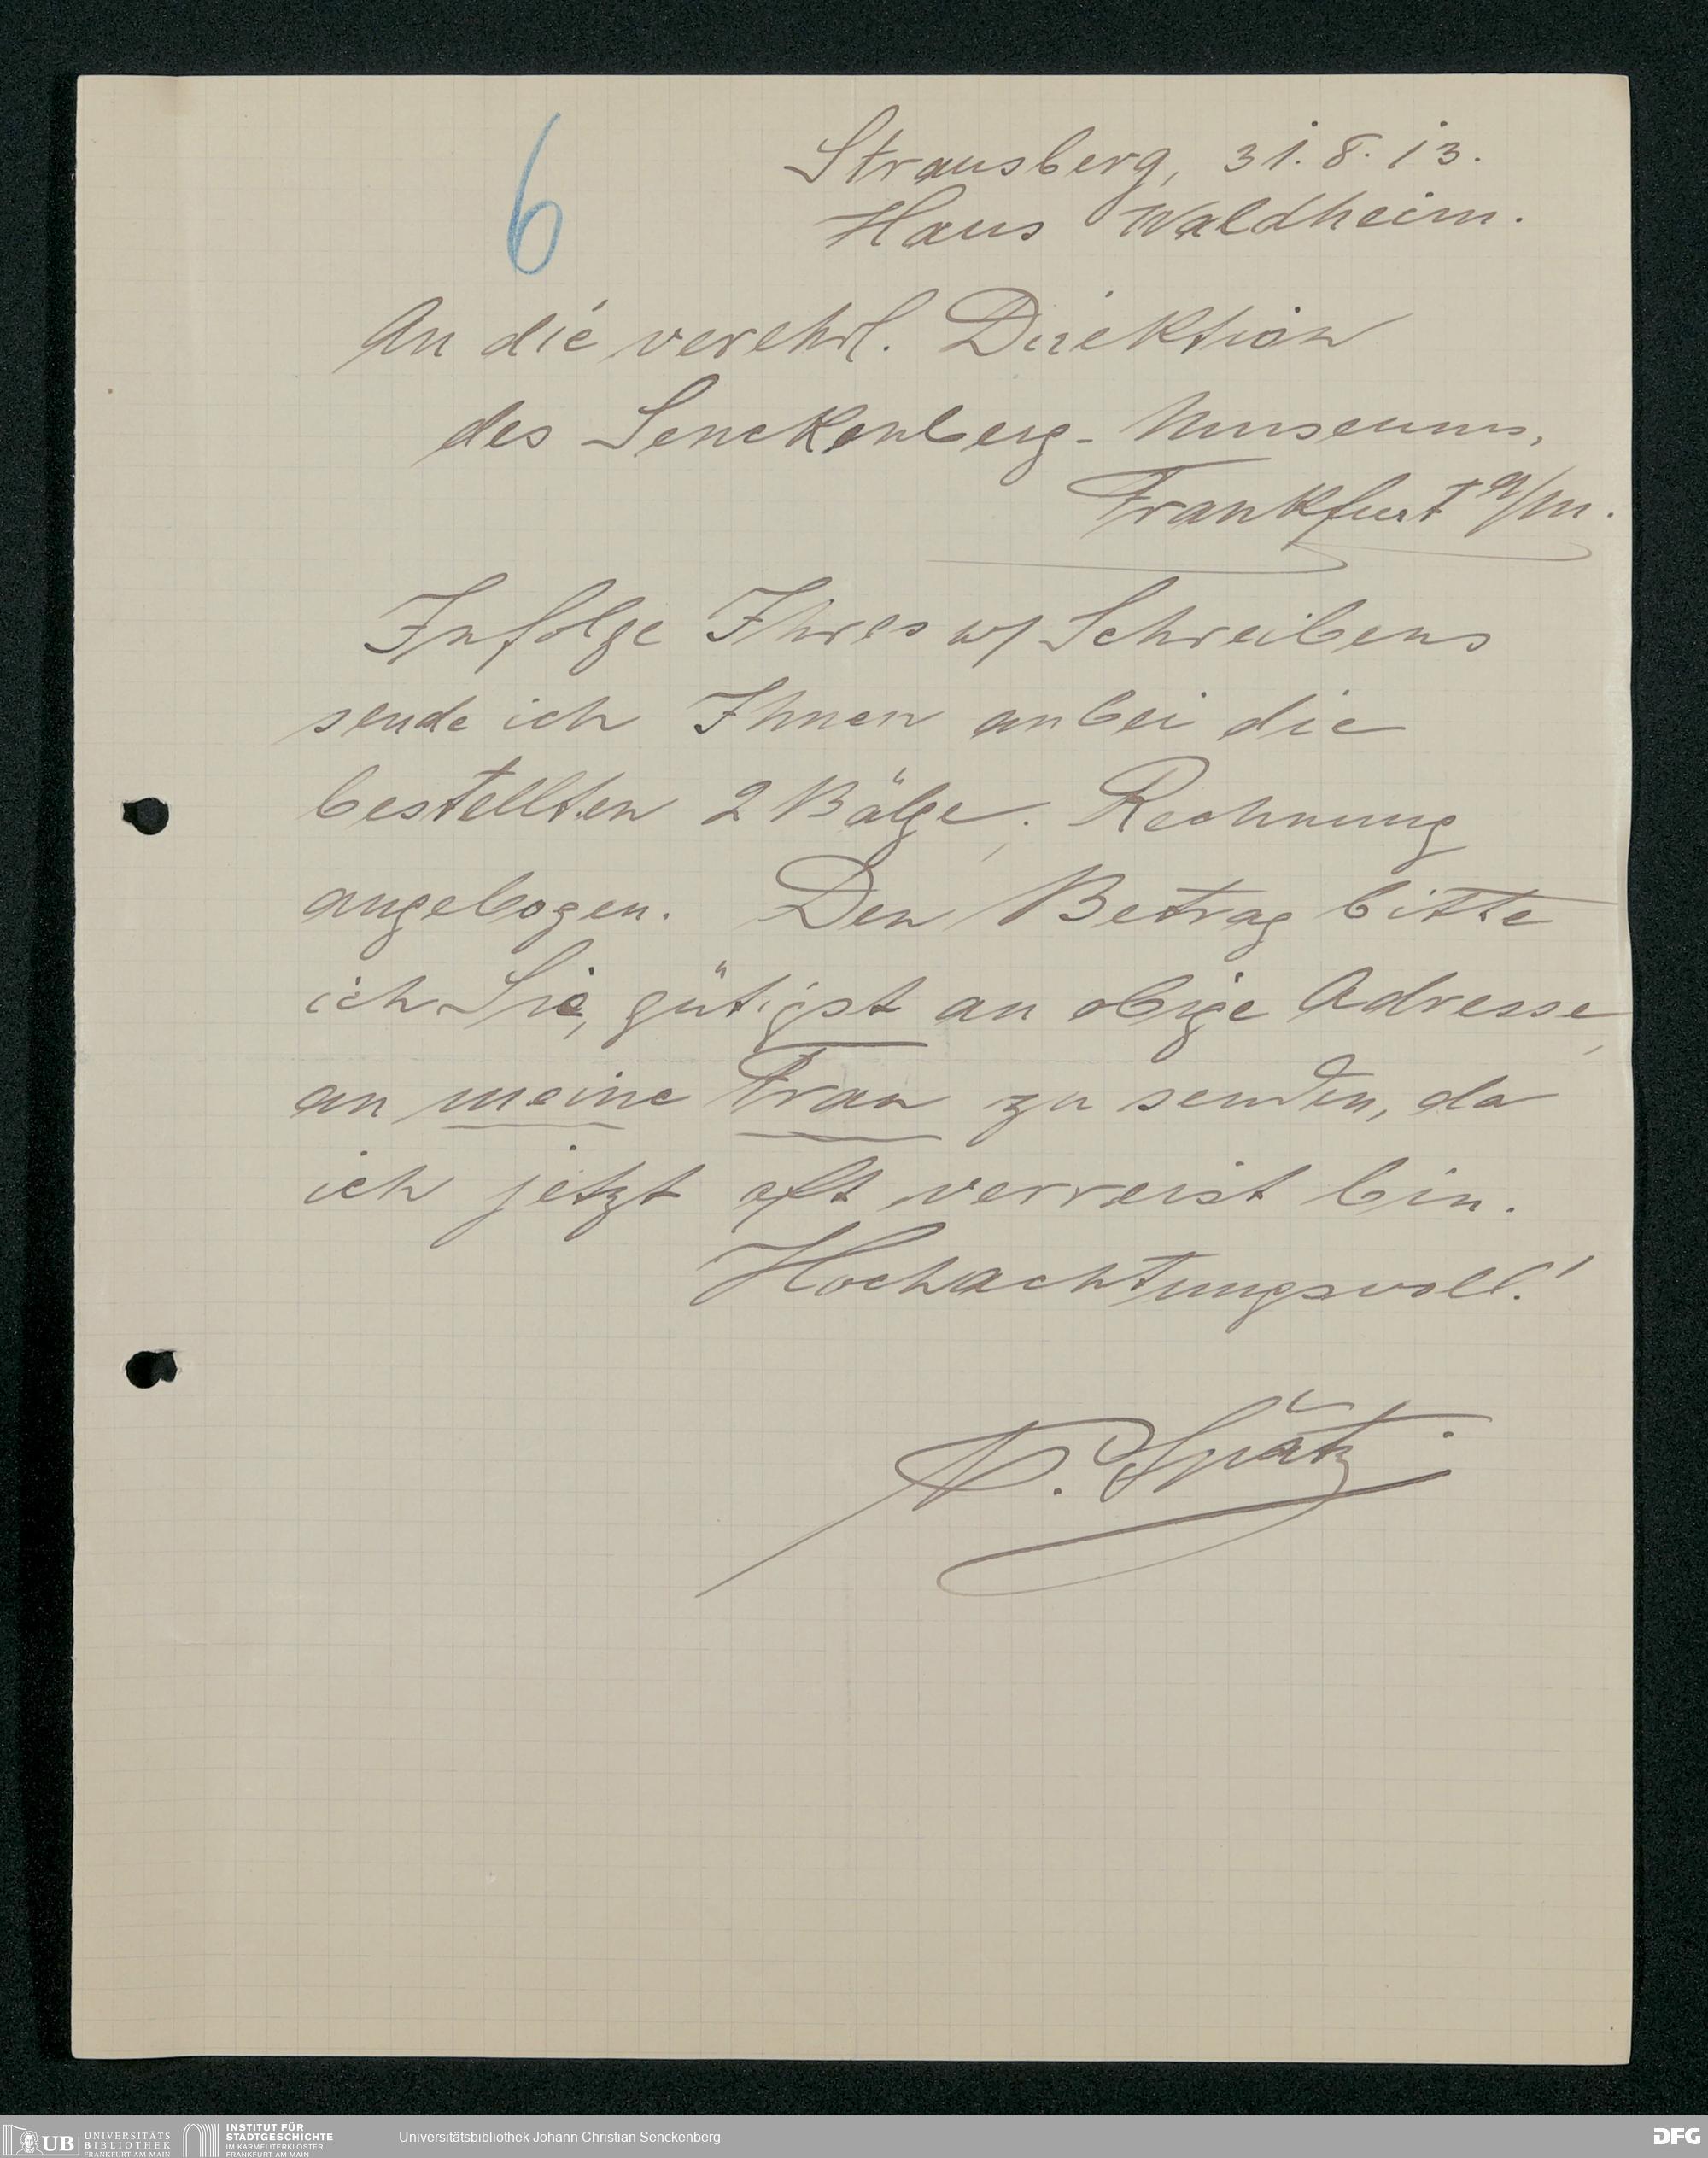 6
Strausberg, 31.8.13.
Haus Waldheim.
An die verehrl. Direktion
des Senckenberg-Museums,
Frankfurt a/M.
Infolge Ihres w/ Schreibens
sende ich Ihnen anbei die
bestellten 2 Bälge, Rechnung
angebogen. Den Betrag bitte
ich Sie, gütigst an obige Adresse,
an meine Frau zu senden, da
ich jetzt oft verreist bin.
Hochachtungsvoll!
P. Spatz.
UB UNIVERSITÄTS
BIBLIOTHEK
FRANKFURT AM MAIN
INSTITUT FÜR
STADTGESCHICHTE
IM KARMELITERKLOSTER
FRANKFURT AM MAIN
Universitätsbibliothek Johann Christian Senckenberg
DFG